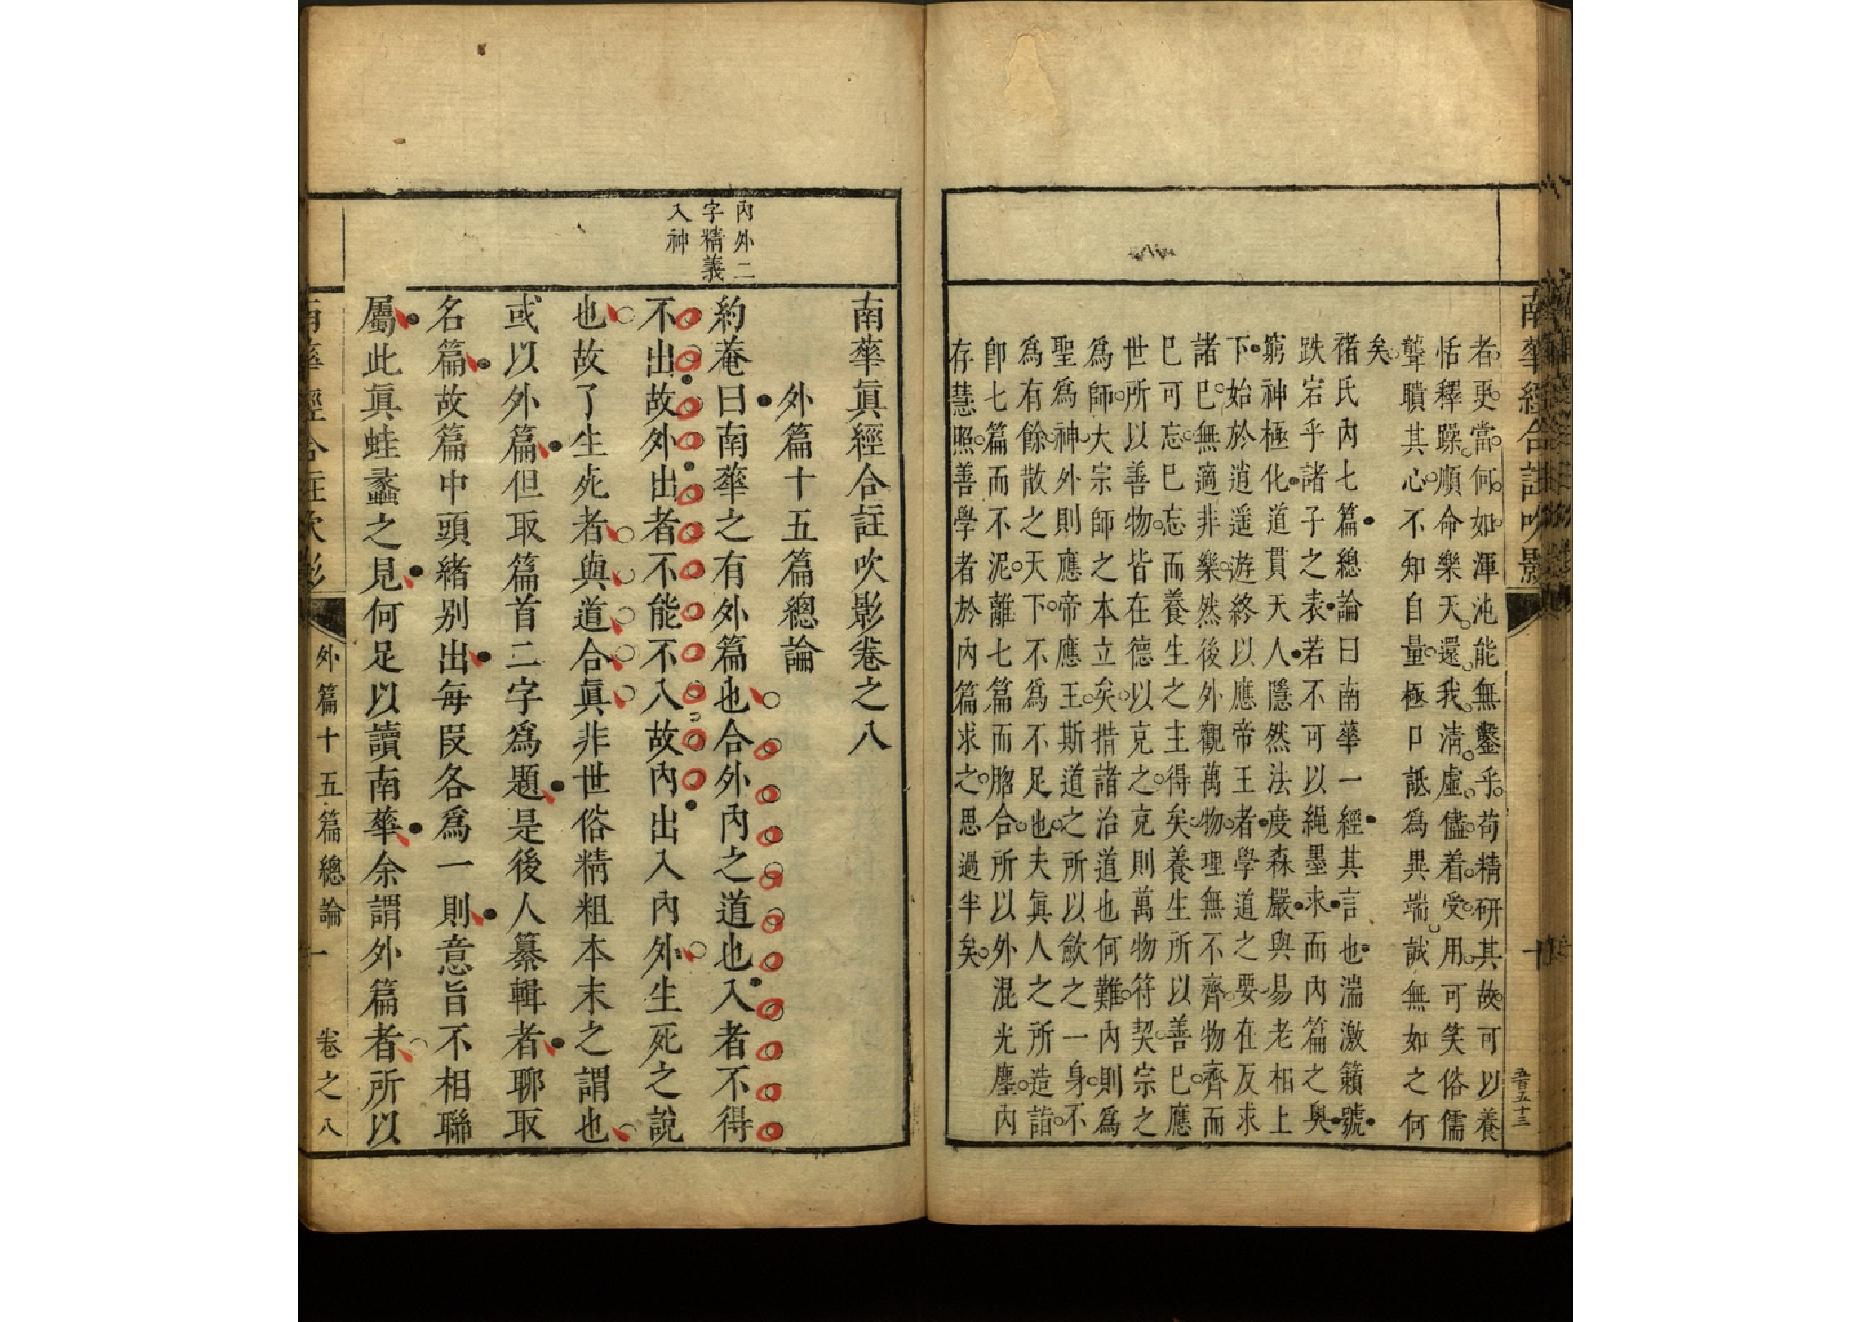 南華經合註吹影
者更當何如渾沌能無鑿乎苟精研其故可以養
恬釋躁順命樂天還我清虛儘着受用可笑俗儒
聾聵其心不知自量極口詆爲異端誠無如之何
矣
褚氏內七篇總論曰南華一經其言也湍激籟號
跌宕乎諸子之表若不可以繩墨求而內篇之奧
窮神極化道貫天人隱然法度森嚴與易老相上
下始於逍遥遊終以應帝王者學道之要在反求
諸巳無適非樂然後外觀萬物理無不齊物齊而
巳可忘巳巳忘而養生之主得矣養生所以善巳應
世所以善物皆在德以克之克則萬物符契宗之
爲師大宗師之本立矣措諸治道也何難內則爲
聖爲神外則應帝應王斯道之所以歛之一身不
爲有餘散之天下不爲不足也夫眞人之所造詣
卽七篇而不泥離七篇而脗合所以外混光塵內
存慧照善學者於內篇求之思過半矣
內外二
字精義
入神
南華眞經合註吹影卷之八
外篇十五篇總論
約菴曰南華之有外篇也合外內之道也入者不得
不出故外出者不能不入故內出入內外生死之說
也故了生死者與道合眞非世俗精粗本末之謂也
或以外篇但取篇首二字爲題是後人纂輯者聊取
名篇故篇中頭緒别出每段各爲一則意旨不相聯
屬此眞蛙蠡之見何足以讀南華余謂外篇者所以
南華經合註吹影
外篇十五篇總論 一 卷之八